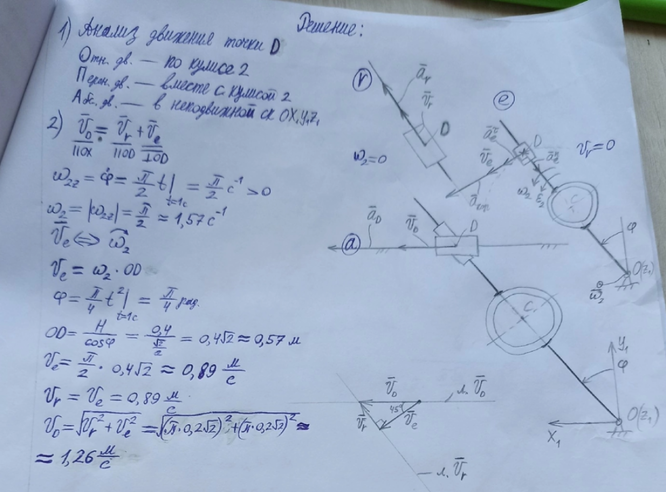 Решение:
1) Анализ движения точки D
Отн. дв. — по кулисе 2
Перен. дв. — вместе с кулисой 2
Абс. дв. — в неподвижной ск OX₁Y₁Z₁
2) V̄_D = V̄_r + V̄_e
||OX ||OD ⊥OD
ω₂z = φ̇ = π/2 t|t=1c = π/2 c⁻¹ > 0
ω₂ = |ω₂z| = π/2 ≈ 1,57 c⁻¹
V̄e ⇔ ω̄₂
Ve = ω₂ · OD
φ = π/4 t²|t=1c = π/4 рад.
OD = H/cosφ = 0,4/(√2/2) = 0,4√2 ≈ 0,57 м
Ve = π/2 · 0,4√2 ≈ 0,89 м/с
Vr = Ve = 0,89 м/с
V_D = √(Vr² + Ve²) = √((π·0,2√2)² + (π·0,2√2)²) ≈
≈ 1,26 м/с
r
ār
V̄r
D
ω₂=0
e
D
V̄e
ω₂
ε̄₂
Vr=0
φ
O(z₁)
a
ā_D
V̄_D
D
C
y₁
φ
O(z₁)
X₁
V̄_D
л. V̄_D
45°
V̄r
V̄e
л. V̄r